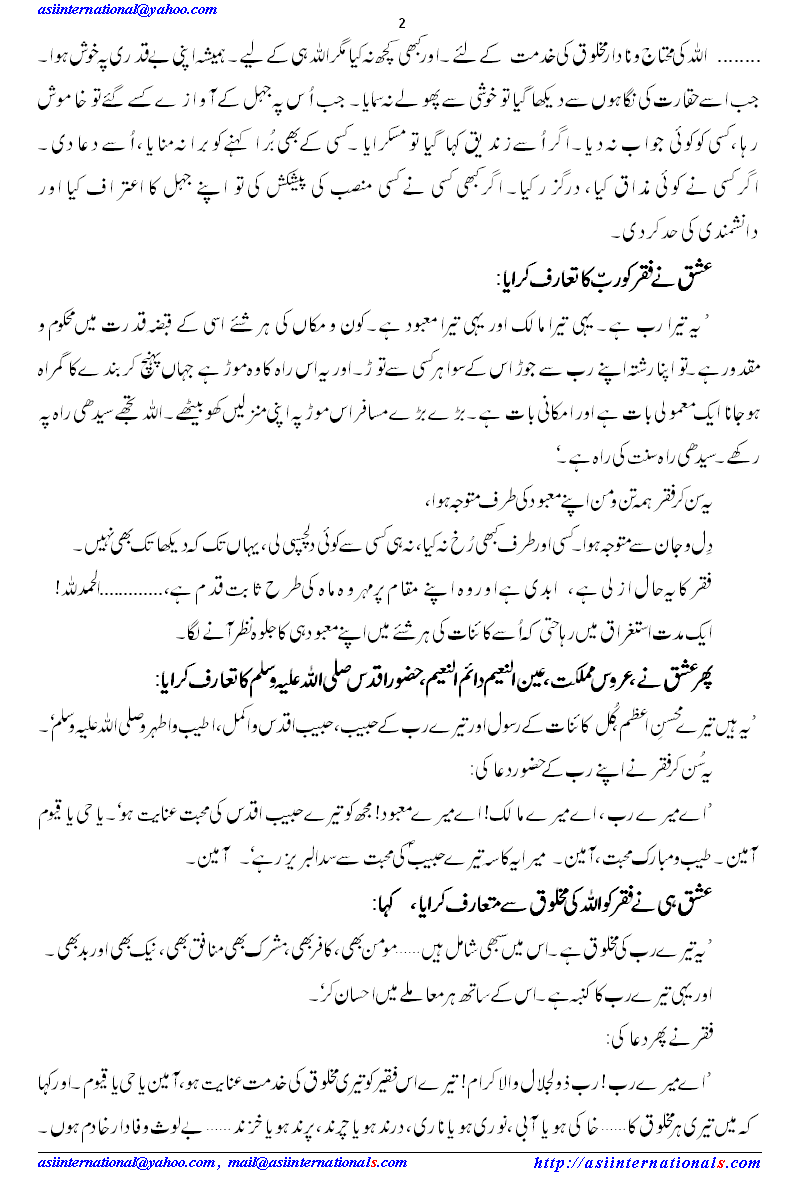 asiinternational@yahoo.com
2
........ اللہ کی محتاج و نادار مخلوق کی خدمت کے لئے ۔ اور کبھی کچھ نہ کیا مگر اللہ ہی کے لیے ۔ ہمیشہ اپنی بے قدری پہ خوش ہوا ۔
جب اسے حقارت کی نگاہوں سے دیکھا گیا تو خوشی سے پھولے نہ سمایا ۔ جب اُس پہ جہل کے آوازے کسے گئے تو خاموش
رہا، کسی کو کوئی جواب نہ دیا ۔ اگر اُسے زندیق کہا گیا تو مسکرایا ۔ کسی کے بھی بُرا کہنے کو برا نہ منایا، اُسے دعا دی ۔
اگر کسی نے کوئی مذاق کیا، درگزر کیا ۔ اگر کبھی کسی نے کسی منصب کی پیشکش کی تو اپنے جہل کا اعتراف کیا اور
دانشمندی کی حد کر دی ۔
عشق نے فقر کو ربّ کا تعارف کرایا:
’یہ تیرا رب ہے ۔ یہی تیرا مالک اور یہی تیرا معبود ہے ۔ کون و مکاں کی ہر شئے اسی کے قبضہ قدرت میں محکوم و
مقدور ہے ۔ تو اپنا رشتہ اپنے رب سے جوڑ اس کے سوا ہر کسی سے توڑ ۔ اور یہ اس راہ کا وہ موڑ ہے جہاں پہنچ کر بندے کا گمراہ
ہو جانا ایک معمولی بات ہے اور امکانی بات ہے ۔ بڑے بڑے مسافر اس موڑ پہ اپنی منزلیں کھو بیٹھے ۔ اللہ تجھے سیدھی راہ پہ
رکھے ۔ سیدھی راہ سنت کی راہ ہے ۔‘
یہ سن کر فقر ہمہ تن و من اپنے معبود کی طرف متوجہ ہوا،
دِل و جان سے متوجہ ہوا ۔ کسی اور طرف کبھی رُخ نہ کیا، نہ ہی کسی سے کوئی دلچسپی لی، یہاں تک کہ دیکھا تک بھی نہیں ۔
فقر کا یہ حال ازلی ہے، ابدی ہے اور وہ اپنے مقام پر مہر و ماہ کی طرح ثابت قدم ہے،.............الحمدللہ!
ایک مدت استغراق میں رہا حتی کہ اُسے کائنات کی ہر شئے میں اپنے معبود ہی کا جلوہ نظر آنے لگا ۔
پھر عشق نے، عروسِ مملکت، عین النعیم دائم النعیم، حضور اقدس صلی اللہ علیہ وسلم کا تعارف کرایا:
’یہ ہیں تیرے محسنِ اعظم کُل کائنات کے رسول اور تیرے رب کے حبیب، حبیب اقدس و اکمل، اطیب و اطہر و صلی اللہ علیہ وسلم‘ ۔
یہ سُن کر فقر نے اپنے رب کے حضور دعا کی:
’اے میرے رب، اے میرے مالک! اے میرے معبود! مجھ کو تیرے حبیب اقدس کی محبت عنایت ہو‘ ۔ یا حی یا قیوم
آمین ۔ طیب و مبارک محبت، آمین ۔ میرا یہ کاسہ تیرے حبیبؐ کی محبت سے سدا لبریز رہے‘ ۔ آمین ۔
عشق ہی نے فقر کو اللہ کی مخلوق سے متعارف کرایا، کہا:
’یہ تیرے رب کی مخلوق ہے ۔ اس میں سبھی شامل ہیں......مومن بھی، کافر بھی، مشرک بھی منافق بھی، نیک بھی اور بد بھی ۔
اور یہی تیرے رب کا کنبہ ہے ۔ اس کے ساتھ ہر معاملے میں احسان کر‘ ۔
فقر نے پھر دعا کی:
’اے میرے رب! رب ذوالجلال والاکرام! تیرے اس فقیر کو تیری مخلوق کی خدمت عنایت ہو، آمین یا حی یا قیوم ۔ اور کہا
کہ میں تیری ہر مخلوق کا......خاکی ہو یا آبی، نوری ہو یا ناری، درند ہو یا چرند، پرند ہو یا خزند......بے لوث وفادار خادم ہوں ۔
asiinternational@yahoo.com, mail@asiinternationals.com http://asiinternationals.com